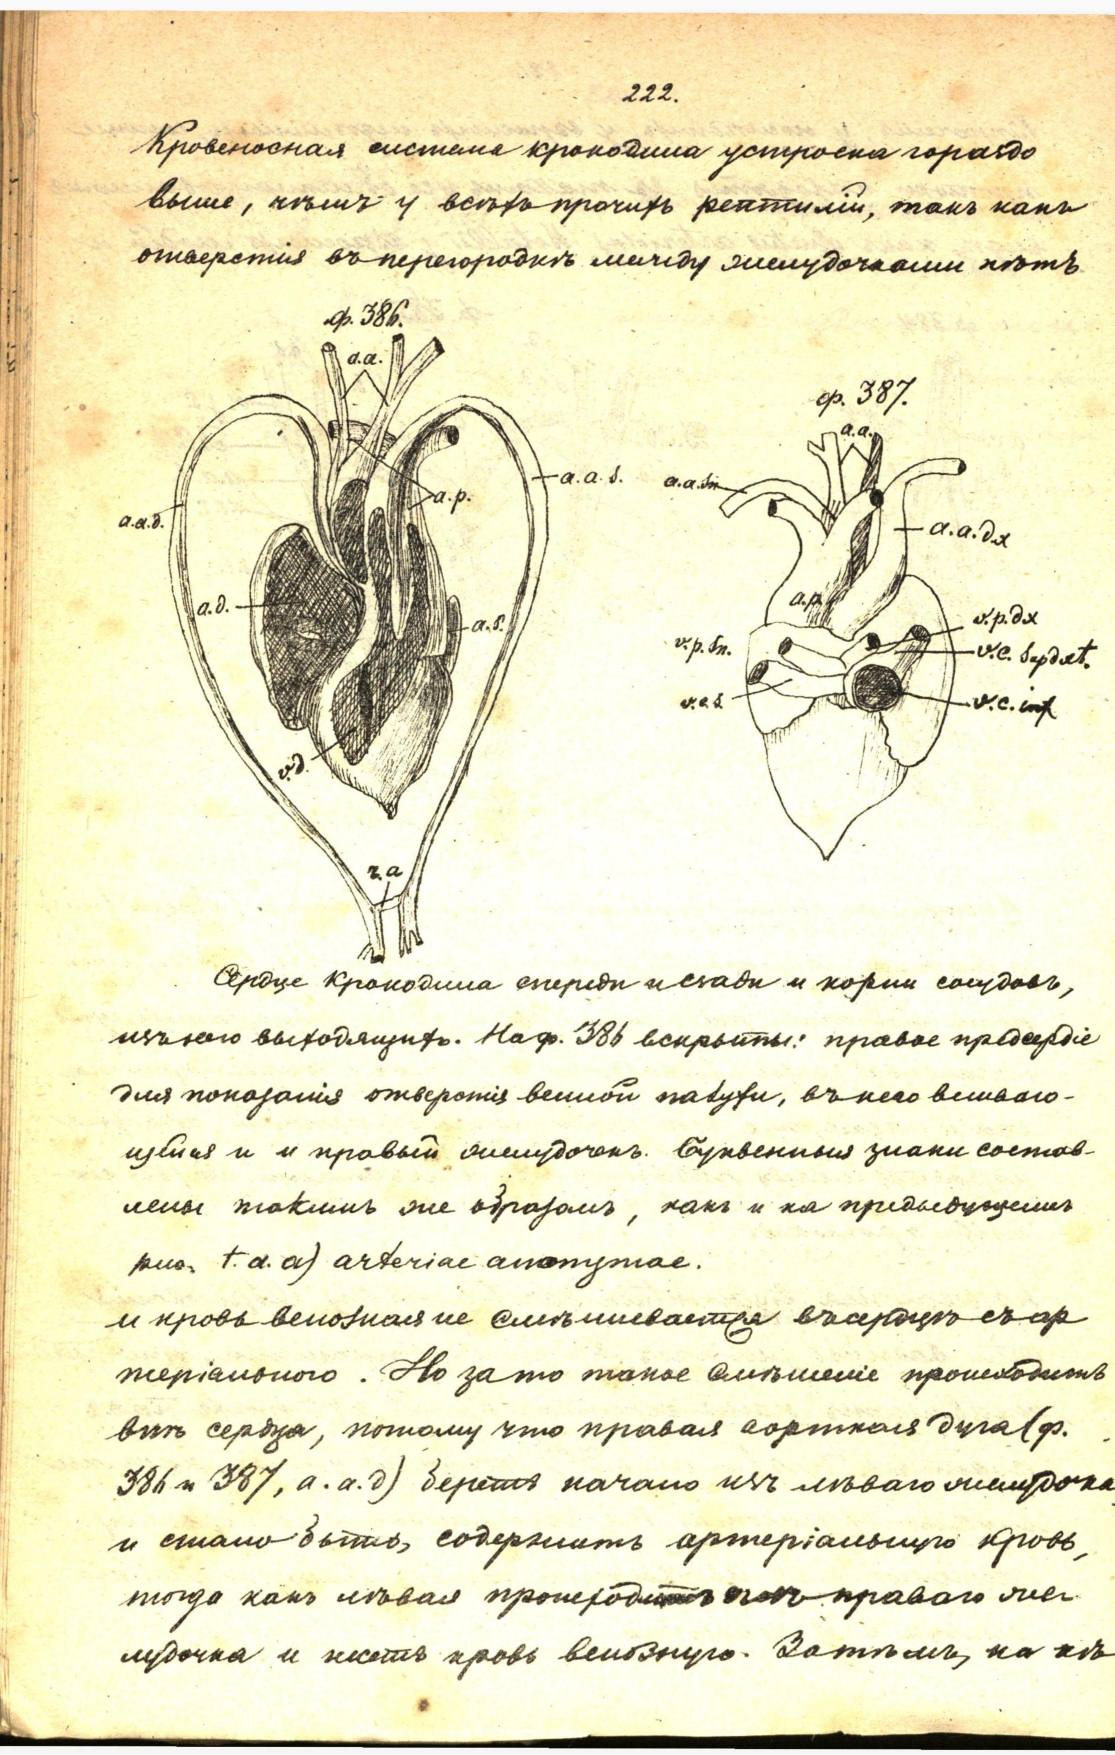 222.
Кровеносная система крокодила устроена гораздо
выше, чѣмъ у всѣхъ прочихъ рептилій, такъ какъ
отверстія въ перегородкѣ между желудочками нѣтъ
ф. 386.
a.a.
ф. 387.
a.a.
a.a.s.
a.a.sn
a.p.
a.a.d.
a.a.dx
a.d.
a.p.
a.s.
v.p.dx
v.p.sn.
v.c. sup dxt.
v.c.s.
v.c.inf
v.d.
r.a
Сердце крокодила спереди и сзади и корни сосудовъ,
изъ него выходящихъ. На ф. 386 вскрыты: правое предсердіе
для показанія отверстія венной пазухи, въ него вливаю-
щейся и и правый желудочекъ. Буквенные знаки состав-
лены такимъ же образомъ, какъ и на предыдущемъ
рис. t. a. a) arteriae anonymae.
и кровь венозная не смѣшивается въ сердцѣ съ ар
теріальною. Но за то такое смѣшеніе происходитъ
внѣ сердца, потому что правая аортная дуга (ф.
386 и 387, a.a.d) беретъ начало изъ лѣваго желудочка
и стало быть, содержитъ артеріальную кровь,
тогда какъ лѣвая происходитъ изъ праваго же
лудочка и несетъ кровь венозную. Затѣмъ, на нѣ